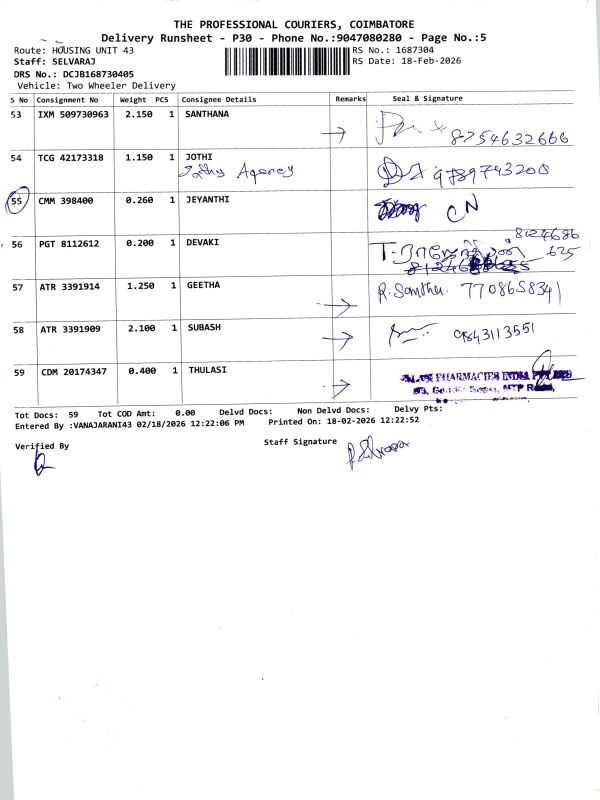 THE PROFESSIONAL COURIERS, COIMBATORE
Delivery Runsheet - P30 - Phone No.:9047080280 - Page No.:5
Route: HOUSING UNIT 43
RS No.: 1687304
Staff: SELVARAJ
RS Date: 18-Feb-2026
DRS No.: DCJB168730405
Vehicle: Two Wheeler Delivery
S No Consignment No Weight PCS Consignee Details Remarks Seal & Signature
53 IXM 509730963 2.150 1 SANTHANA
8754632666
54 TCG 42173318 1.150 1 JOTHI
Jothy Agency
9789743200
55 CMM 398400 0.260 1 JEYANTHI
CN
56 PGT 8112612 0.200 1 DEVAKI
8124686
625
57 ATR 3391914 1.250 1 GEETHA
R. Santha 7708658341
58 ATR 3391909 2.100 1 SUBASH
9843113551
59 CDM 20174347 0.400 1 THULASI
PHARMACIES INDIA
MTP Road,
Tot Docs: 59 Tot COD Amt: 0.00 Delvd Docs: Non Delvd Docs: Delvy Pts:
Entered By :VANAJARANI43 02/18/2026 12:22:06 PM Printed On: 18-02-2026 12:22:52
Verified By
Staff Signature